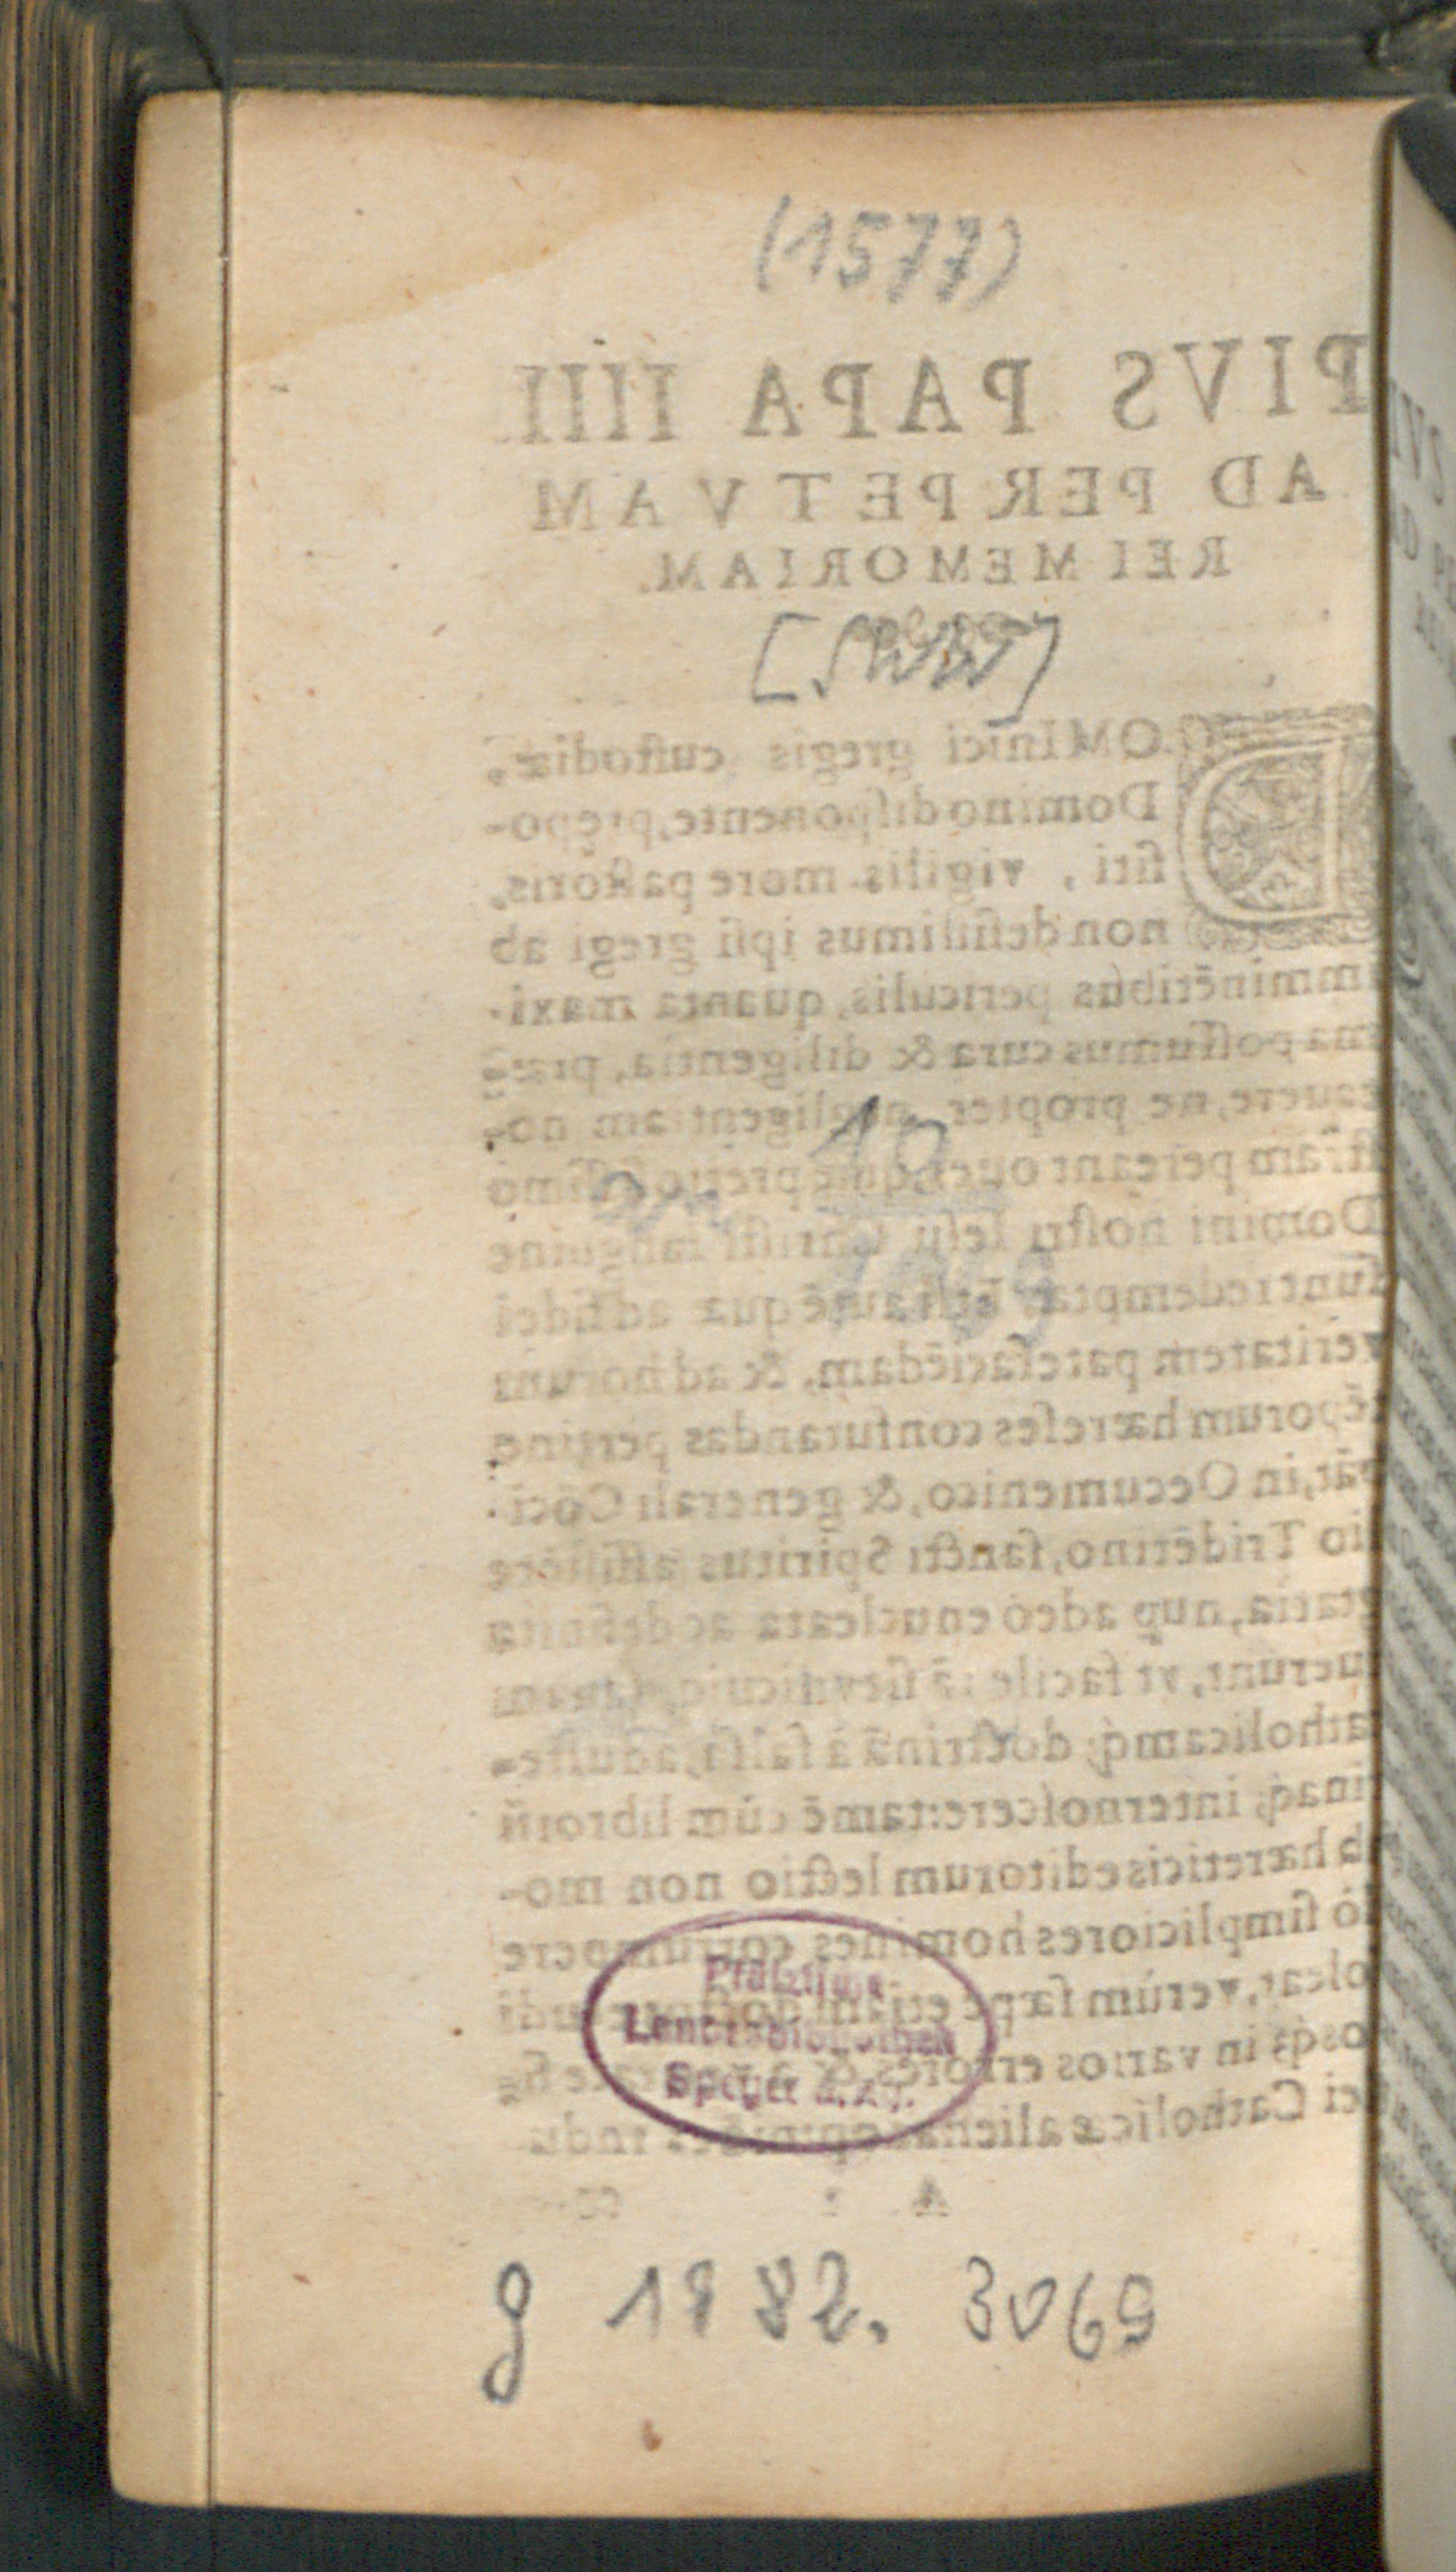 (1577)
PIVS PAPA IIII
AD PERPETVAM
REI MEMORIAM.
DOMINici gregis custodiæ,
Domino disponente, prępo-
siti, vigilis more pastoris,
non desistimus ipsi gregi ab
imminētibus periculis, quanta maxi-
ma possumus cura & diligentia, præ-
cauere, ne propter negligentiam no-
stram pereant oues, quæ pretiosissimo
10
Domini nostri Iesu Christi sanguine
sunt redemptæ.
quæ ad fidei
veritatem patefaciēdam, & ad horum
tēporum hæreses confutandas pertine
bāt, in Oecumenico, & generali Cōci-
lio Tridētino, sancti Spiritus assistēte
gratia, nup adeò enucleata ac definita
fuerunt, vt facile iā sit vnicuiq;
catholicamq; doctrinā à falsa, adulte-
rinaq; internoscere: tamē cùm librorū
ab hæreticis editorum lectio non mo-
dò simpliciores homines corrumpere
soleat, verùm sæpe etiam doctos
osq; in varios errores, & à
ci Catholicæ alienas opiniōes indu
A 2 ce
Pfälzische
Landesbibliothek
Speyer a. Rh.
g 1882. 3069